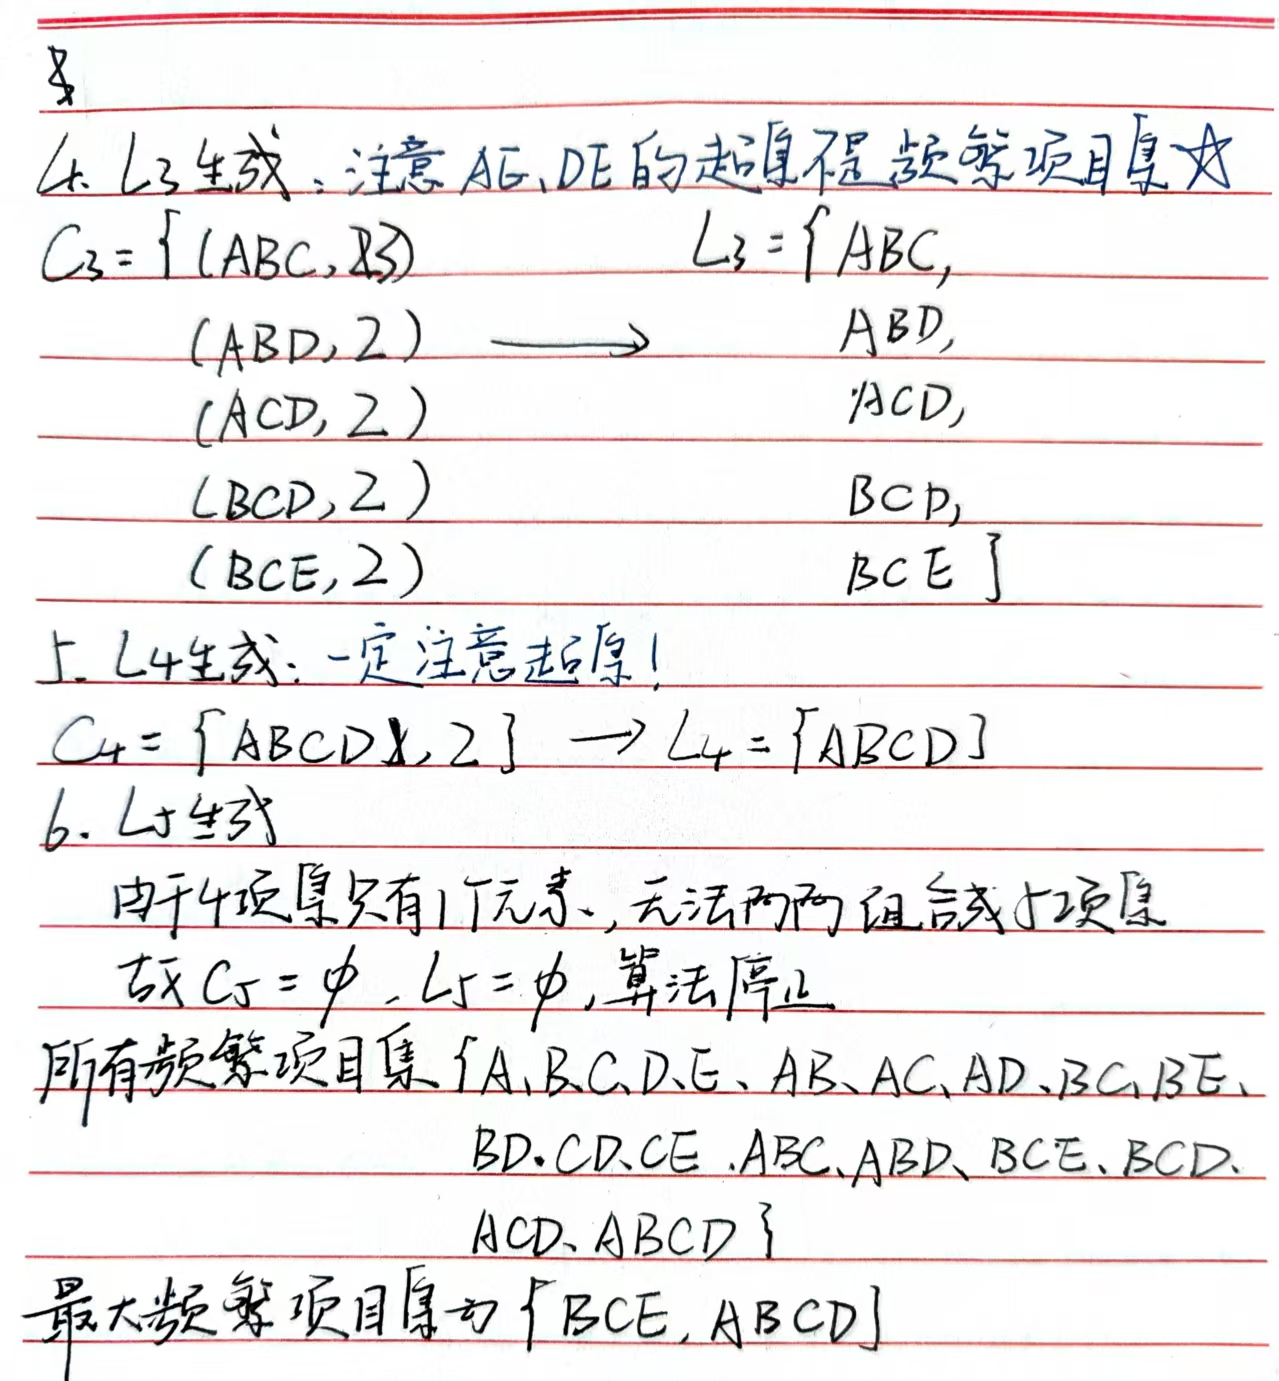 4. L3生成:注意AE、DE的超集不是频繁项目集☆
C3={(ABC,3) L3={ABC,
(ABD,2) → ABD,
(ACD,2) ACD,
(BCD,2) BCD,
(BCE,2) BCE}
5. L4生成:一定注意超集!
C4={ABCD,2} → L4={ABCD}
6. L5生成
由于4项集只有1个元素,无法两两组合成5项集
故C5=φ,L5=φ,算法停止
所有频繁项目集{A、B、C、D、E、AB、AC、AD、BC、BE、
BD、CD、CE、ABC、ABD、BCE、BCD、
ACD、ABCD}
最大频繁项目集为{BCE,ABCD}